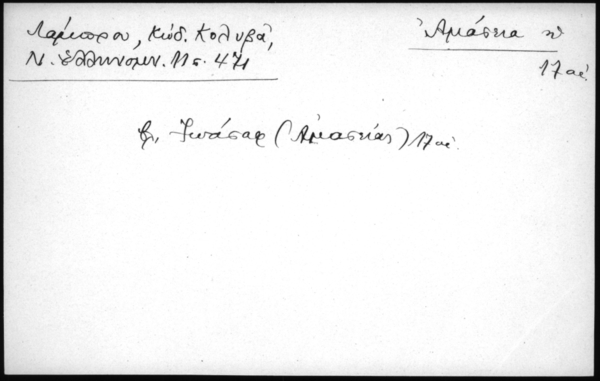 Λάμπρου, Κώδ. Κολυβᾶ,
Ν. Ἑλληνομν. 11 σ. 471
Ἀμάσεια
17 αἰ.
βλ. Ἰωάσαφ (Ἀμασείας) 17 αἰ.